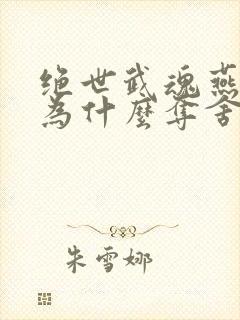 绝世武魂燕
為什麼奪舍
朱雪娜